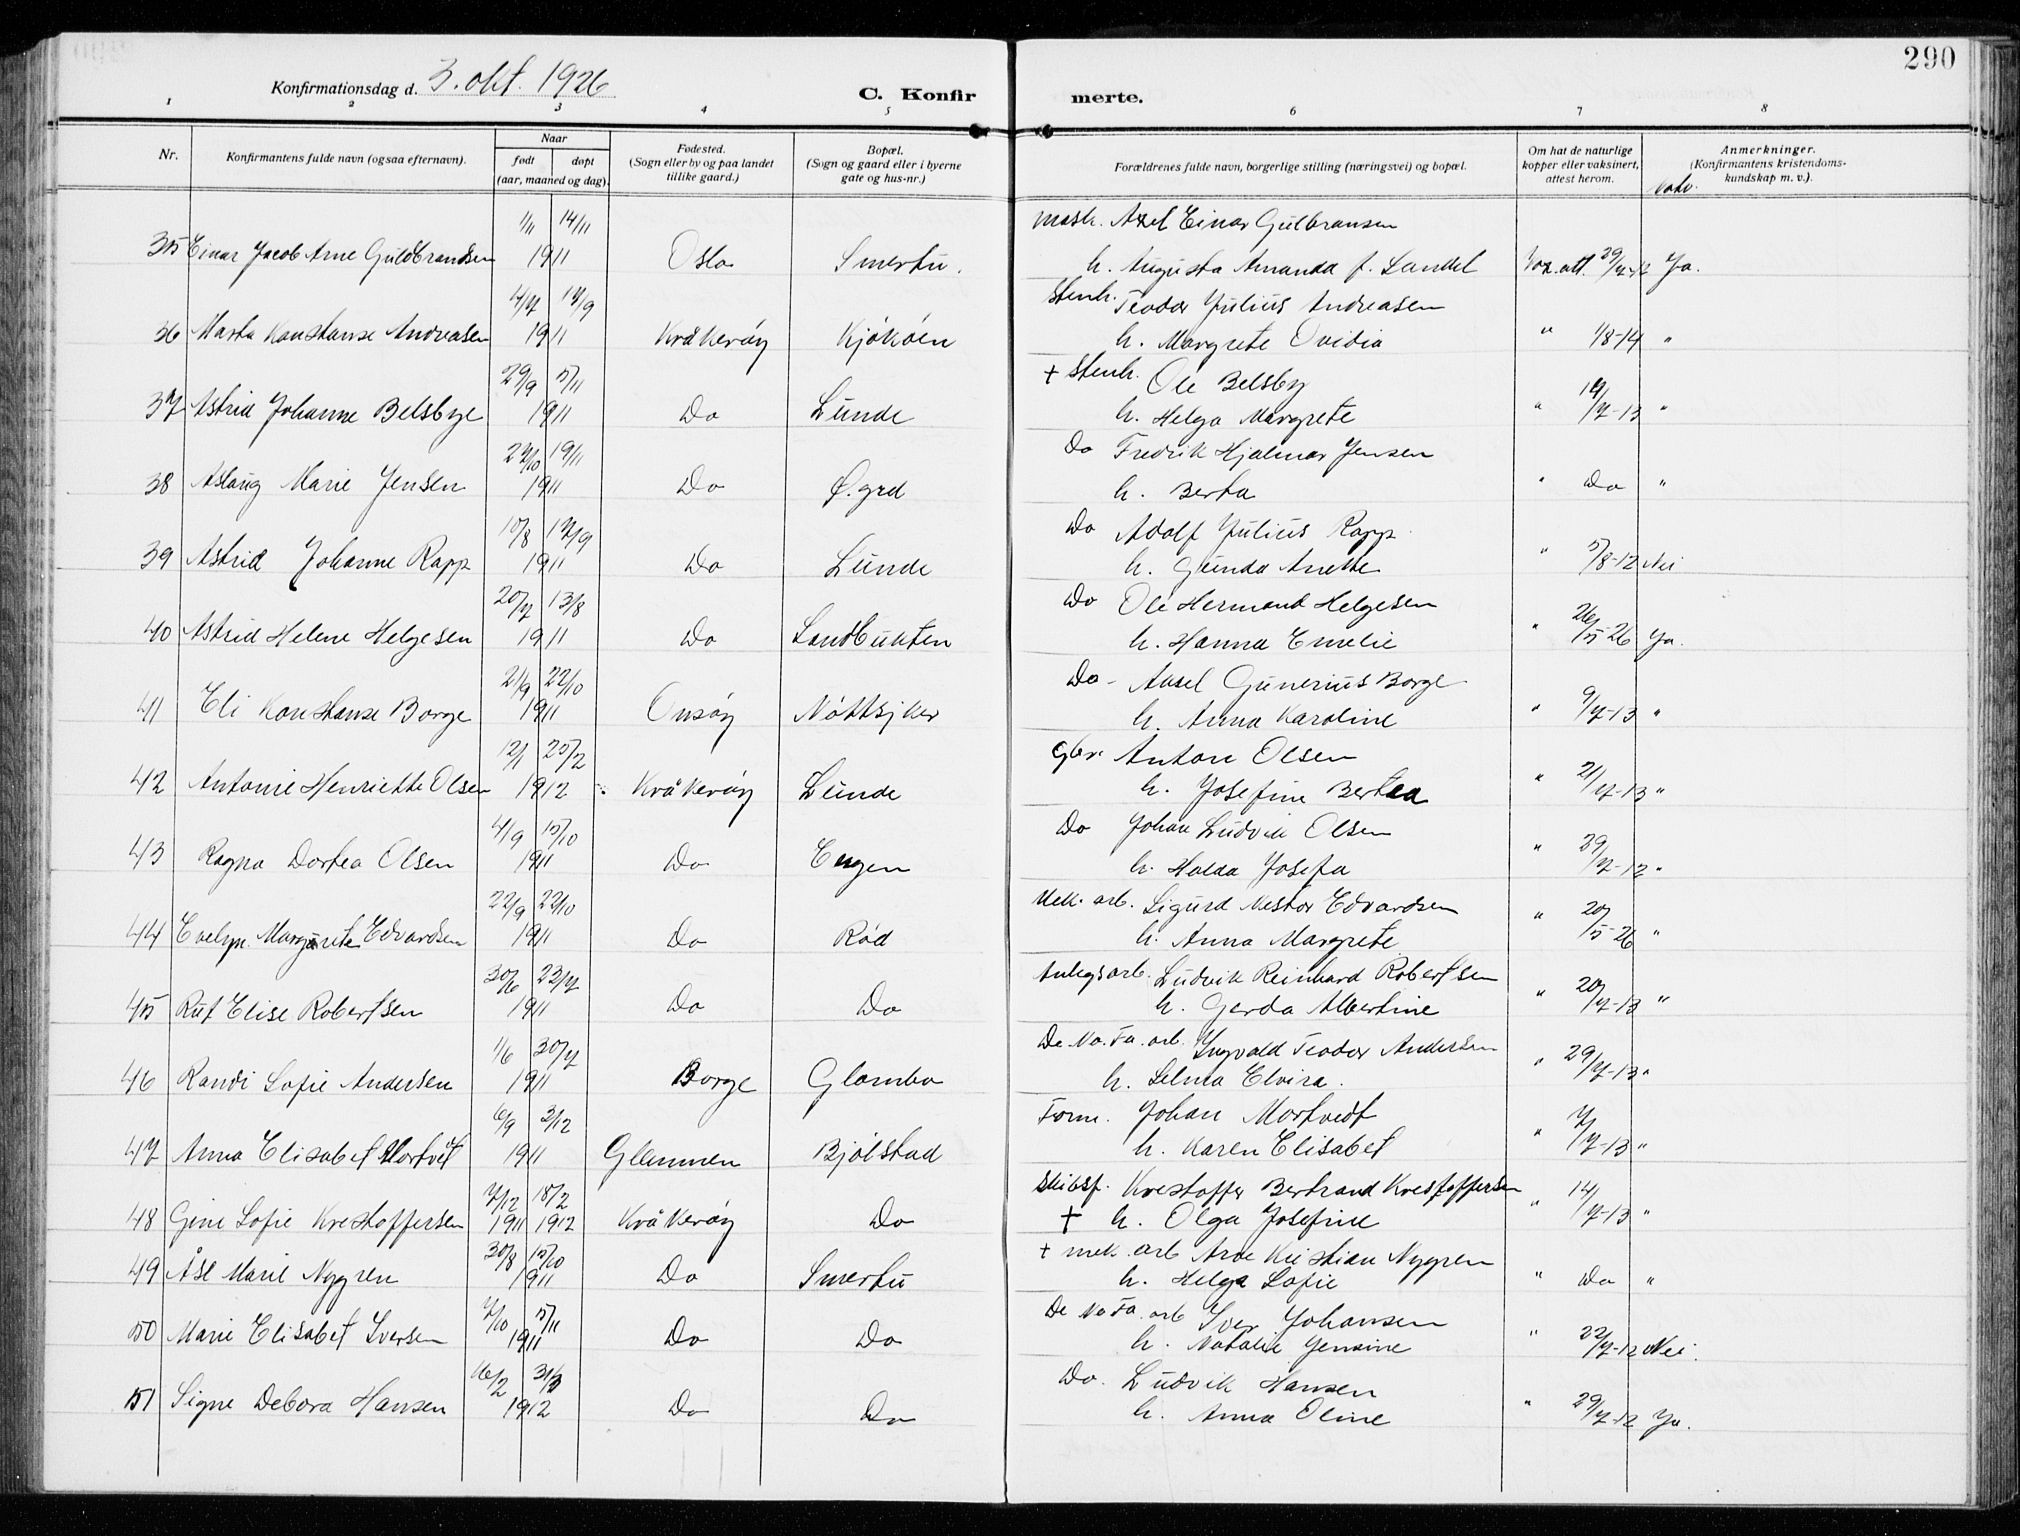 290
Konfirmationsdag d. 3. okt. 1926
C. Konfirmerte.
1 2 3 4 5 6 7 8
Nr. Konfirmantens fulde navn (ogsaa efternavn). Naar født døpt (aar, maaned og dag). Fødested. (Sogn eller by og paa landet tillike gaard.) Bopæl. (Sogn og gaard eller i byerne gate og hus-nr.) Forældrenes fulde navn, borgerlige stilling (næringsvei) og bopæl. Om hat de naturlige kopper eller vaksinert, attest herom. Anmerkninger. (Konfirmantens kristendoms-kundskap m. v.).
1/11 14/11 mask. Axel Einar Gulbransen
35 Einar Jacob Arne Guldbrandsen 1911 Oslo Smertu. h. Augusta Amanda f. Sandel Vax. att. 29/7-12 Ja.
4/7 17/9 Stenh. Teodor Julius Andreasen
36 Marta Konstanse Andreasen 1911 Kråkerøy Kjøkøen h. Margrete Ovidia " 1/8-14 "
29/9 5/11 + Stenh. Ole Belsby
37 Astrid Johanne Belsbye 1911 Do Lunde h. Helga Margrete " 14/7-13 "
27/10 19/11 Do Fredrik Hjalmar Jensen
38 Aslaug Marie Jensen 1911 Do Ø.grd h. Berta " Do "
10/8 17/9 Do Adolf Julius Rapp.
39 Astrid Johanne Rapp 1911 Do Lunde h. Gunda Anette " 5/8-12 Nei
20/7 13/8 Do Ole Hermand Helgesen
40 Astrid Helene Helgesen 1911 Do Sandbukten h. Hanna Emelie " 26/5-26 Ja.
21/9 22/10 Do - Aksel Gunerius Borge
41 Eli Konstanse Borge 1911 Onsøy Nøttsjker h. Anna Karoline " 9/7-13 "
12/1 25/2 Gbr. Anton Olsen
42 Antonie Henriette Olsen 1912 Kråkerøy Lunde h. Josefine Bertea " 21/7-13 "
4/9 15/10 Do Johan Ludvik Olsen
43 Ragna Dortea Olsen 1911 Do Engen h. Halda Josefa " 29/7-12 "
22/9 22/10 Mek. arb. Sigurd Nestor Edvardsen
44 Evelyn Margrete Edvardsen 1911 Do Rød h. Anna Margrete " 20/5-26 "
30/6 23/7 Anlegsarb. Ludvik Reinhard Robertsen
45 Rut Elise Robertsen 1911 Do Do h. Gerda Albertine " 20/7-13 "
1/6 30/7 De No. Fa. arb. Yngvald Teodor Andersen
46 Randi Sofie Andersen 1911 Borge Glombo h. Selma Elvira. " 29/7-13 "
6/9 3/12 Form. Johan Mortvedt
47 Anna Elisabet Mortvet 1911 Glemmen Bjølstad h. Karen Elisabet " 7/7-13 "
7/12 18/2 Skibsf. Krestoffer Bertrand Krestoffersen
48 Gine Sofie Krestoffersen 1911 1912 Kråkerøy Do + h. Olga Josefine " 14/7-13 "
30/8 15/10 + mek. arb Arve Kristian Nygren
49 Åse Marie Nygren 1911 Do Smertu h. Helga Sofie " Do "
7/10 5/11 De No Fa. arb Iver Johansen
50 Marie Elisabet Iversen 1911 Do Do h. Natalie Jensine " 22/7-12 Nei.
16/2 31/3 Do. Ludvik Hansen
51 Signe Debora Hansen 1912 Do Do h. Anna Oline " 29/7-12 Ja.